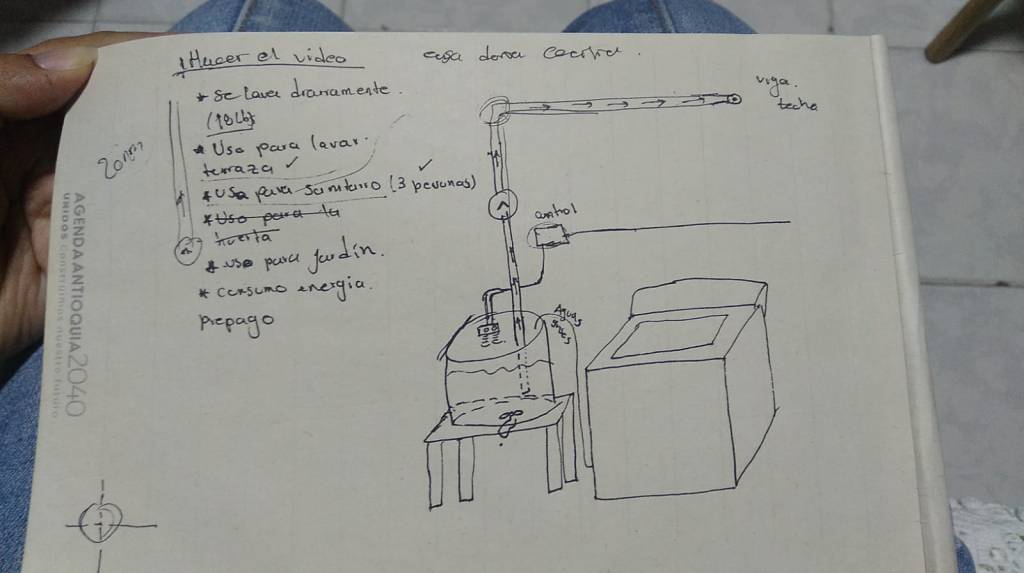 ¡Hacer el video
casa doña
* Se lava diariamente.
(18Lb)
* Uso para lavar.
terraza ✓
* uso para sanitario (3 personas)
* Uso para la
huerta
* uso para jardín.
* consumo energia.
prepago
20mm
viga.
techo
control
Aguas
AGENDA ANTIOQUIA 2040
UNIDOS construimos nuestro futuro